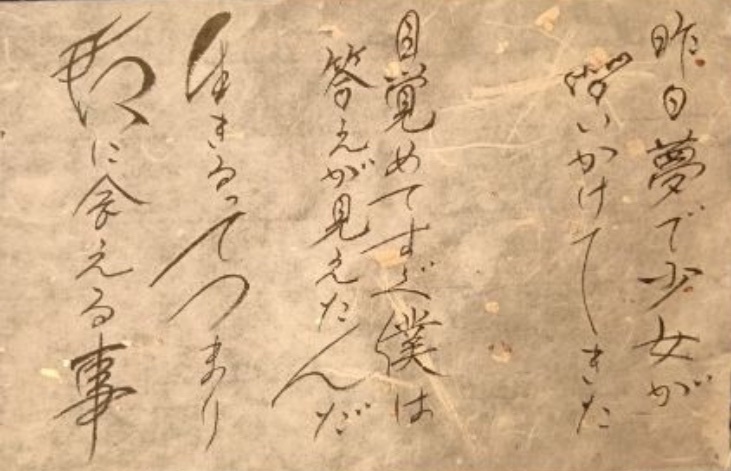 昨日夢で少女が
問いかけてきた
目覚めてすぐ僕は
答えが見えたんだ
生きるってつまり
君に会える事